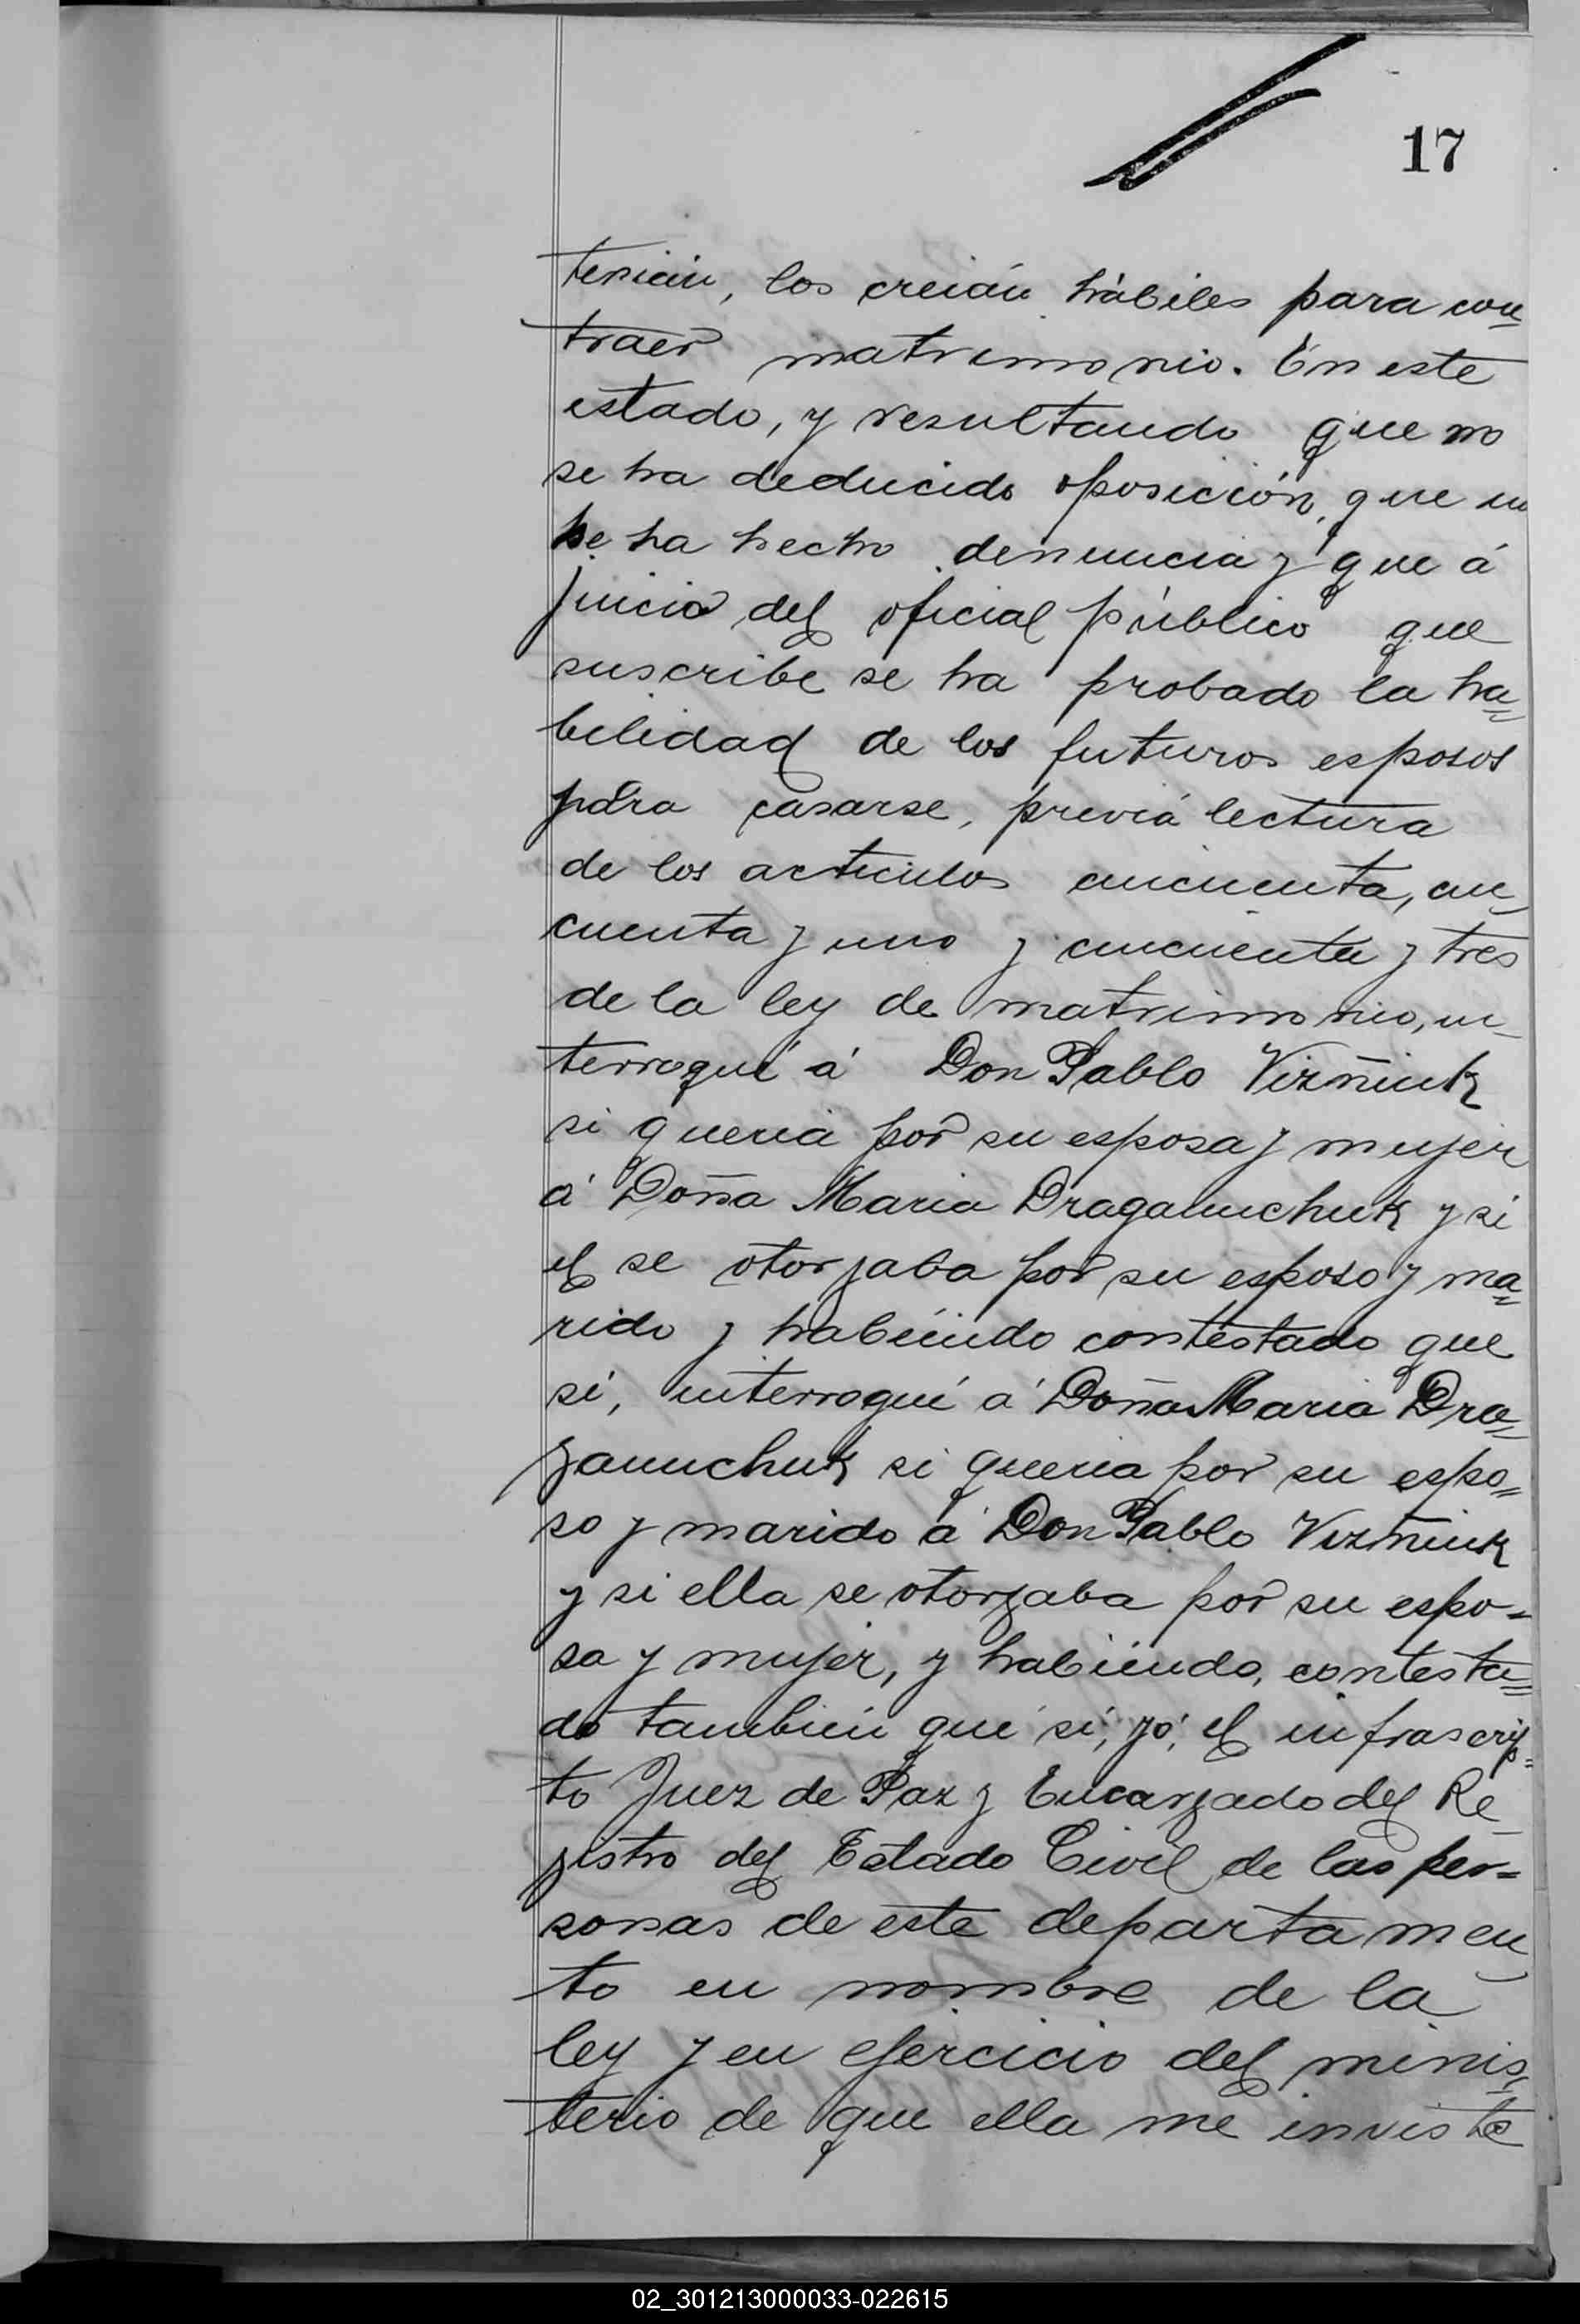 17
tenián, los creián hábiles para con=
traer matrimonio. En este
estado, y resultando que no
se ha deducido oposición, que no
se ha hecho denuncia y que á
juicio del oficial público que
suscribe se ha probado la ha=
bilidad de los futuros esposos
para casarse, previá lectura
de los articulos cincuenta, cin_
cuenta y uno y cincuenta y tres
de la ley de matrimonio, in_
terrogué á Don Pablo Vizñiuk
si queria por su esposa y mujer
á Doña Maria Draganchuk y si
el se otorgaba por su esposo y ma=
rido y habiéndo contestado que
si, interrogué á Doña Maria Dra=
ganuchuk si queria por su espo=
so y marido á Don Pablo Vizñiuk
y si ella se otorgaba por su espo=
sa y mujer, y habiéndo, contesta=
do también que si, yó, el infrascrip=
to Juez de Paz y Encargado del Re_
gistro del Estado Civil de las per=
sonas de este departamen_
to en nombre de la
ley y en ejercicio del minis=
terio de que ella me inviste
02_301213000033-022615